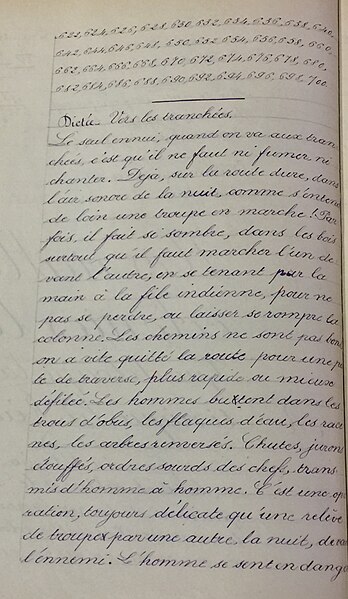 622, 624, 626, 628, 630, 632, 634, 636, 638, 640,
642, 644, 646, 648, 650, 652, 654, 656, 658, 660,
662, 664, 666, 668, 670, 672, 674, 676, 678, 680,
682, 684, 686, 688, 690, 692, 694, 696, 698, 700.
Dictée. Vers les tranchées.
Le seul ennui, quand on va aux tran
chées, c'est qu'il ne faut ni fumer ni
chanter. Dejà, sur la route dure, dans
l'air sonore de la nuit, comme s'entend
de loin une troupe en marche! Par
fois, il fait si sombre, dans les bois
surtout qu'il faut marcher l'un de
vant l'autre, en se tenant par la
main à la file indienne, pour ne
pas se perdre, ou laisser se rompre la
colonne. Les chemins ne sont pas bons
on a vite quitté la route pour une pis
te de traverse, plus rapide ou mieux
défileé. Les hommes butent dans les
trous d'obus, les flaques d'eau, les raci
nes, les arbres renversés. Chutes, jurons
étouffés, ordres sourds des chefs, trans
mis d'homme à homme. C'est une opé
ration, toujours délicate qu'une relève
de troupe par une autre la nuit, devant
l'ennemi. L'homme se sent en dang